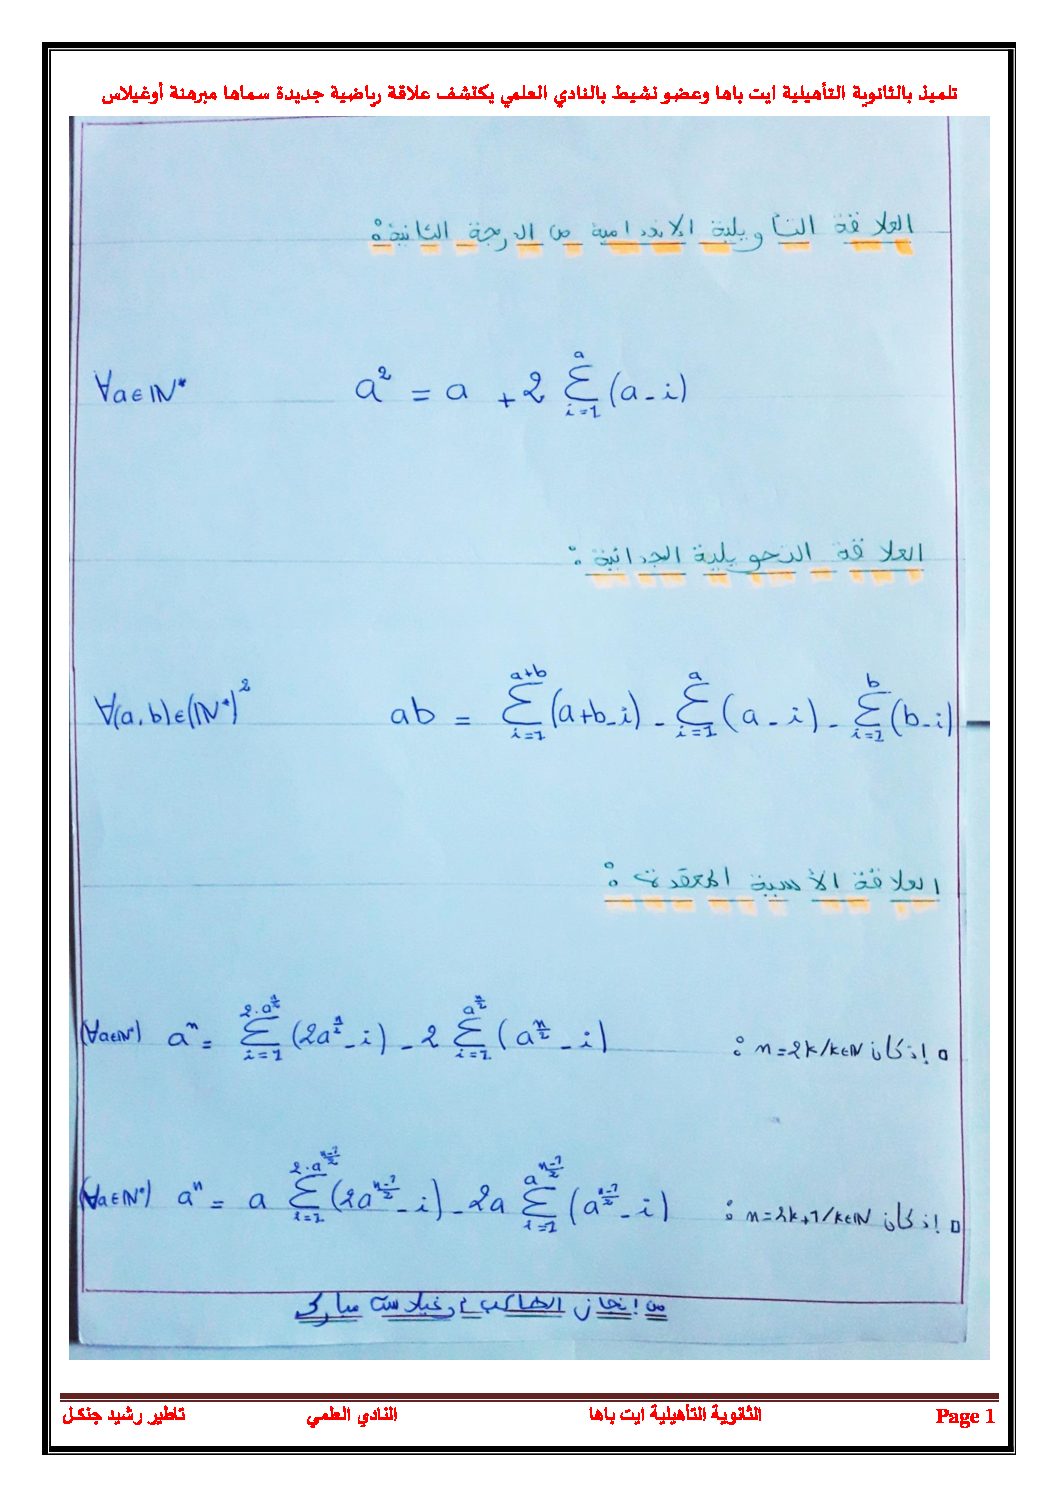 تلميذ بالثانوية التأهيلية ايت باها وعضو نشيط بالنادي العلمي يكتشف علاقة رياضية جديدة سماها مبرهنة أوغيلاس
العلاقة التأويلية الانعدامية من الدرجة الثانية:
∀a∈IN* a² = a + 2 Σ_{i=1}^{a} (a-i)
العلاقة التحويلية الجدائية:
∀(a,b)∈(IN*)² ab = Σ_{i=1}^{a+b} (a+b-i) - Σ_{i=1}^{a} (a-i) - Σ_{i=1}^{b} (b-i)
العلاقة الأسية المعقدة:
□ إذ كان n=2k/k∈IN : (∀a∈IN*) a^n = Σ_{i=1}^{2·a^{n/2}} (2a^{n/2}-i) - 2 Σ_{i=1}^{a^{n/2}} (a^{n/2}-i)
□ إذ كان n=2k+1/k∈IN : (∀a∈IN*) a^n = a Σ_{i=1}^{2·a^{(n-1)/2}} (2a^{(n-1)/2}-i) - 2a Σ_{i=1}^{a^{(n-1)/2}} (a^{(n-1)/2}-i)
من إنجاز الطالب أوغيلاست مبارك
Page 1 الثانوية التأهيلية ايت باها النادي العلمي تاطير رشيد جنكل